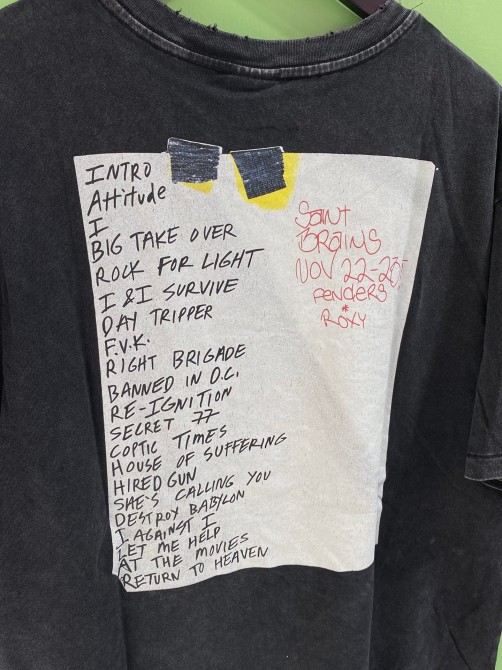 INTRO
Attitude
I
BIG TAKE OVER
ROCK FOR LIGHT
I & I SURVIVE
DAY TRIPPER
F.V.K.
RIGHT BRIGADE
BANNED IN D.C.
RE-IGNITION
SECRET 77
COPTIC TIMES
HOUSE OF SUFFERING
HIRED GUN
SHE'S CALLING YOU
DESTROY BABYLON
I AGAINST I
LET ME HELP
AT THE MOVIES
RETURN TO HEAVEN
Saint
Brains
NOV 22-23
Fenders
*
Roxy